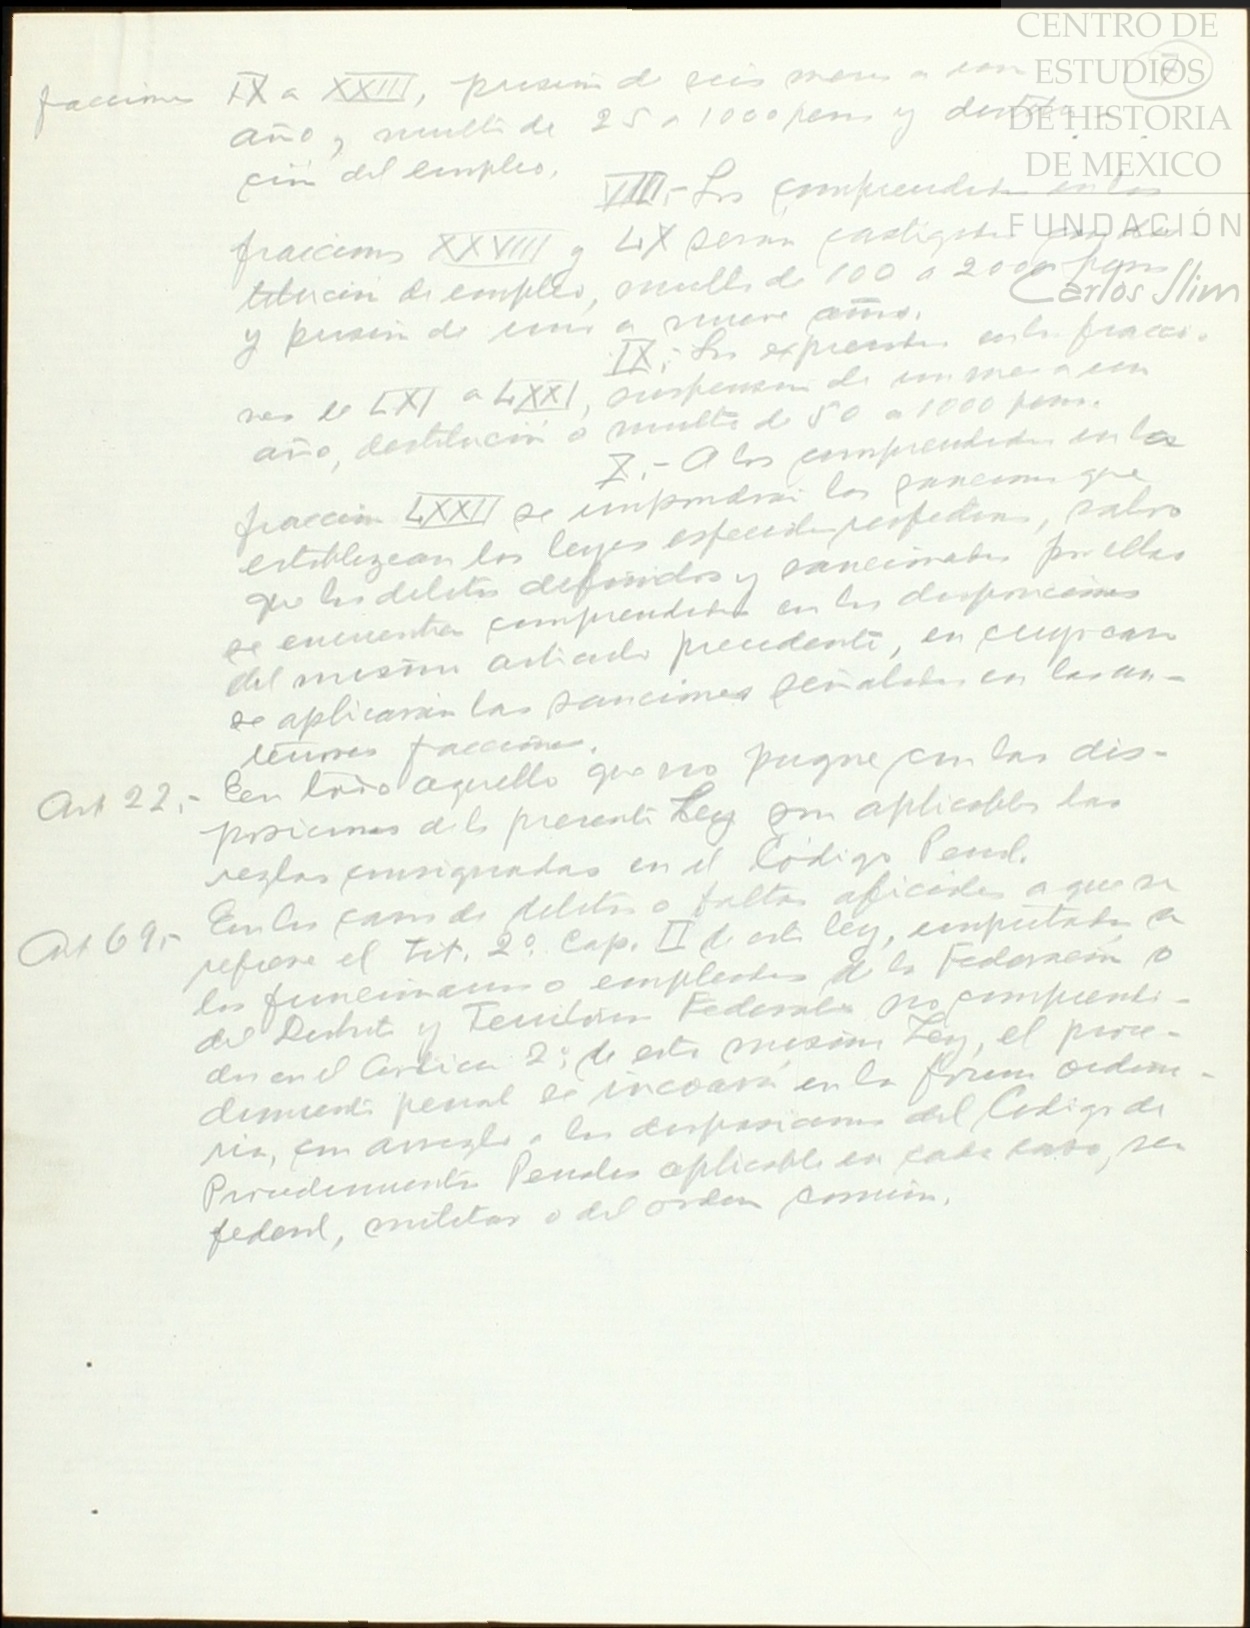 CENTRO DE
ESTUDIOS
DE HISTORIA
DE MEXICO
FUNDACIÓN
Carlos Slim
7
fracciones IX a XXIII, prisión de seis meses a un
año, multa de 25 a 1000 pesos y destitu-
ción del empleo.
VIII.- Los comprendidos en las
fracciones XXVIII y LX serán castigados con des-
titución de empleo, multa de 100 a 2000 pesos
y prisión de uno a nueve años.
IX.- Los expresados en la fraccio-
nes de LXI a LXXI, suspensión de un mes a un
año, destitución o multa de 50 a 1000 pesos.
X.- A los comprendidos en la
fracción LXXII se impondrán las sanciones que
establezcan las leyes especiales respectivas, salvo
que los delitos definidos y sancionados por ellas
se encuentren comprendidos en las disposiciones
del mismo artículo precedente, en cuyo caso
se aplicarán las sanciones señaladas en las an-
teriores fracciones.
Art 22.- En todo aquello que no pugne con las dis-
posiciones de la presente Ley son aplicables las
reglas consignadas en el Código Penal.
Art 69.- En los casos de delitos o faltas oficiales a que se
refiere el Tit. 2º Cap. II de esta ley, imputados a
los funcionarios o empleados de la Federación o
del Distrito y Territorios Federales no comprendi-
dos en el Artículo 2º de esta misma Ley, el proce-
dimiento penal se incoará en la forma ordina-
ria, con arreglo a las disposiciones del Código de
Procedimientos Penales aplicable en cada caso, sea
federal, militar o del orden común.